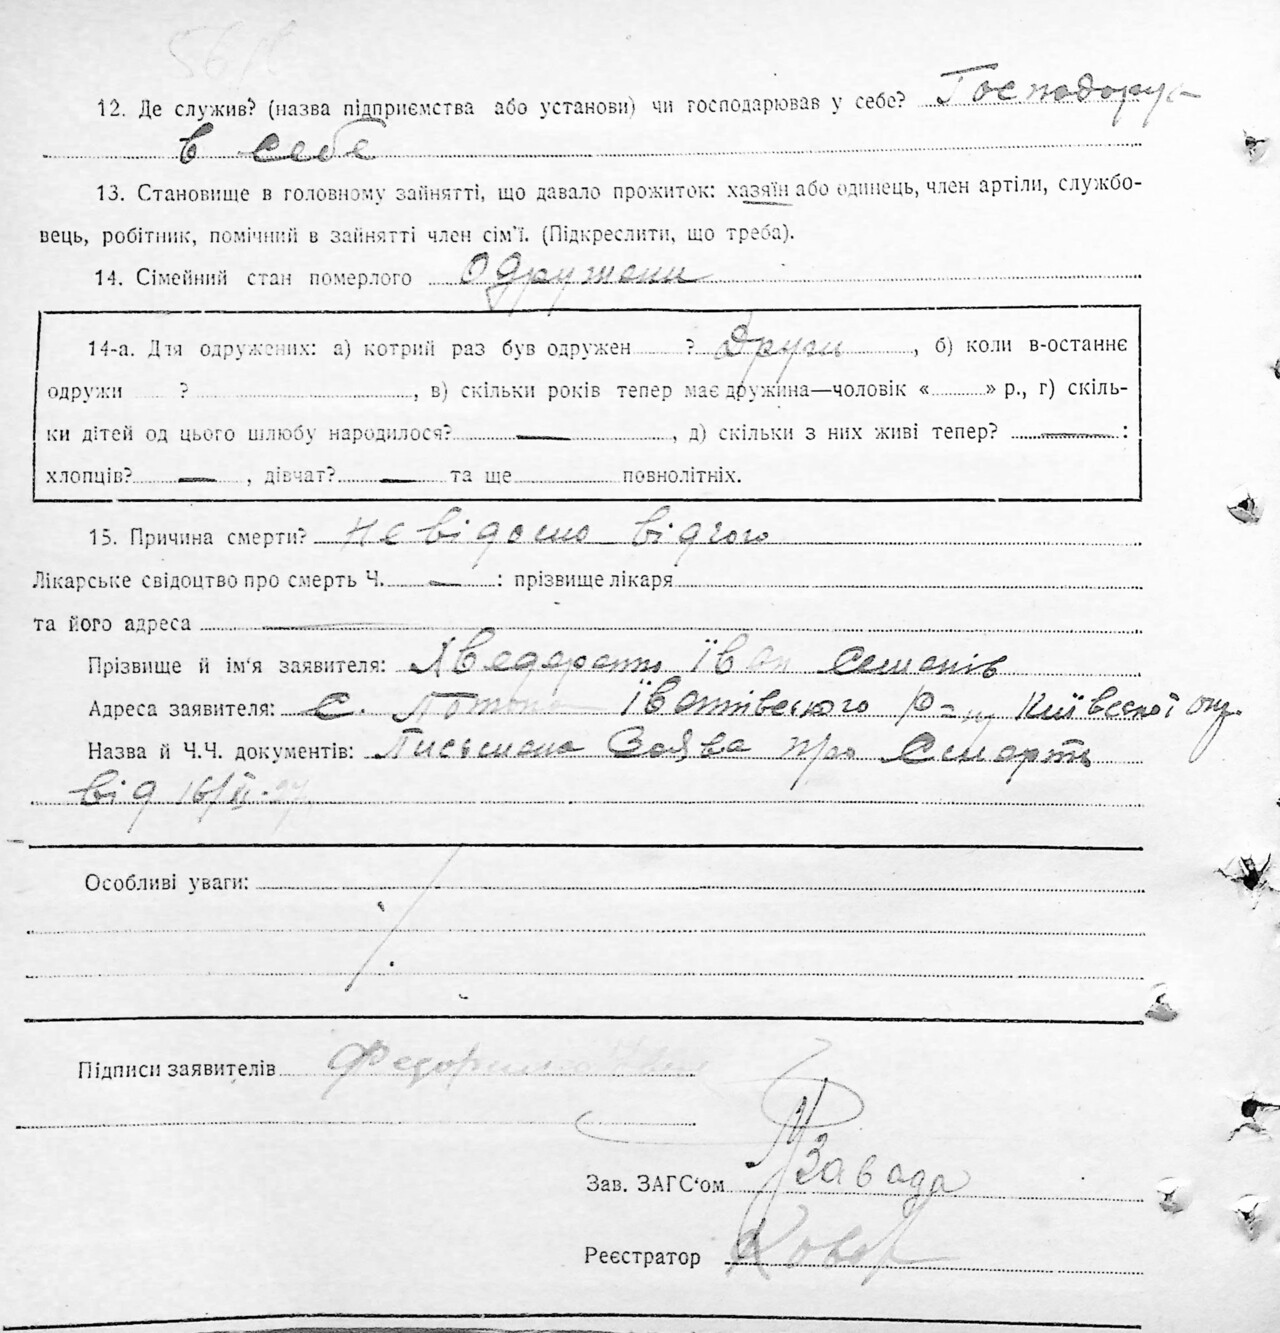 12. Де служив? (назва підприємства або установи) чи господарював у себе? Господарув
в себе
13. Становище в головному зайнятті, що давало прожиток: хазяїн або одинець, член артіли, службо-
вець, робітник, помічний в зайнятті член сім'ї. (Підкреслити, що треба).
14. Сімейний стан померлого Одружени
14-а. Для одружених: а) котрий раз був одружен ? други, б) коли в-останнє
одружи ?, в) скільки років тепер має дружина—чоловік « » р., г) скіль-
ки дітей од цього шлюбу народилося? —, д) скільки з них живі тепер? — :
хлопців? —, дівчат? — та ще повнолітніх.
15. Причина смерти? Не відомо від чого
Лікарське свідоцтво про смерть Ч. — : прізвище лікаря
та його адреса —
Прізвище й ім'я заявителя: Іван Семенів
Адреса заявителя: с. р-ну Київської окр.
Назва й Ч.Ч. документів: Письмена Заява про Смерть
від 16/II
Особливі уваги:
Підписи заявителів Федоренко Іван
Зав. ЗАГС'ом Завада
Реєстратор Ковер